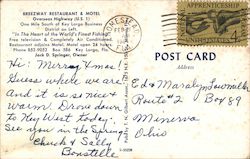 BREEZWAY RESTAURANT & MOTEL
Overseas Highway (U.S. 1)
One Mile South of Key Largo Business
District on Left.
"In The Heart of the World's Finest Fishing"
Free television & Completely Air Conditioned.
Restaurant adjoins Motel. Motel open 24 hours.
Phone 852-9053 Box 186 Key Largo, Fla.
Jack D. Springer, Owner
HOMESTEAD
FLA.
APPRENTICESHIP
POST CARD
Address
Hi: Merray & mae
Guess where we are
And it is so nice &
warm. Drove down
to Key West today.
See you in the Spring.
Chuck & Sally
Bonstelle
Ed & Maralyn Lowmiller
Route #2 Box 89
Minerva
Ohio